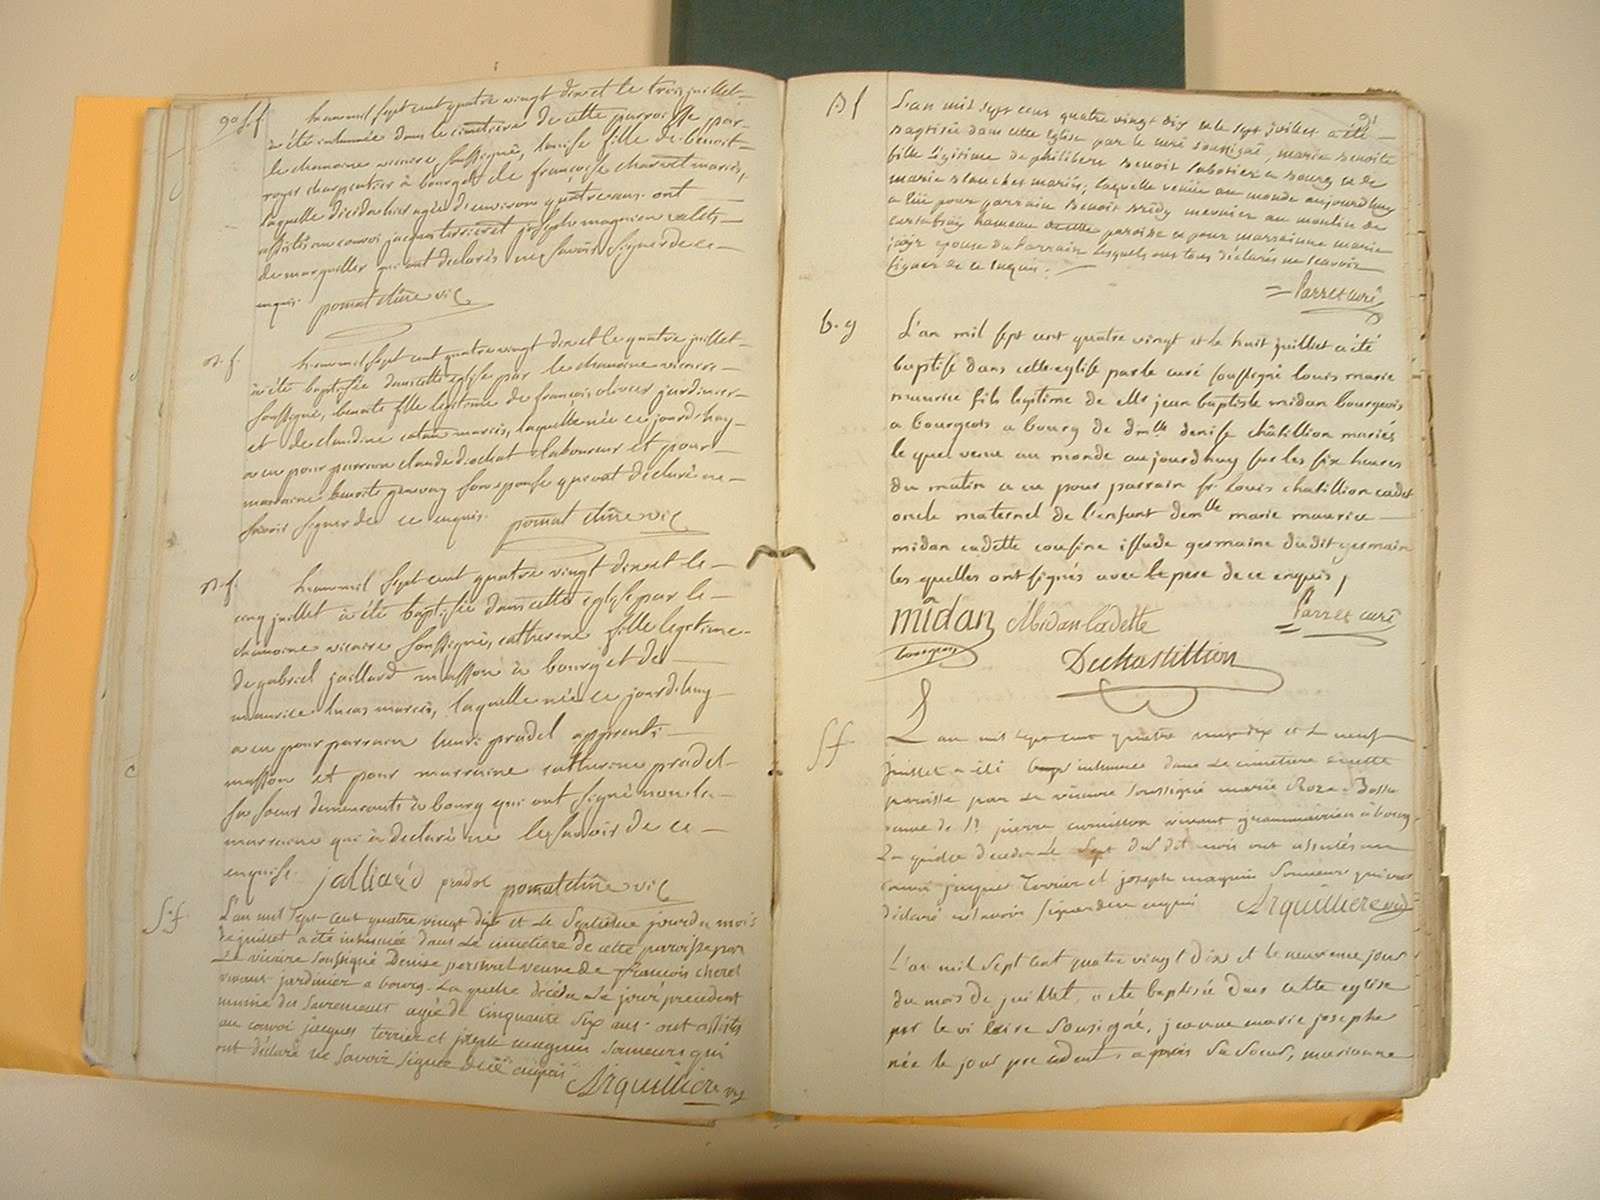 90 s.f
l'an mil sept cent quatre vingt dix et le trois juillet
à été inhumée dans le cimetière de cette parroisse par
le chanoine vicaire soussigné, louise fille de benoit
royer charpentier à bourg et de françoise charvet mariés,
laquelle décédée hier agée d'environ quatre ans. ont
assistés au convoi jacques terrier et joseph magnien valets
de marguiller qui ont déclarés ne savoir signer de ce
enquis. pomat chne vic
n. f.
l'an mil sept cent quatre vingt dix et le quatre juillet
à été baptisée dans cette eglise par le chanoine vicaire
soussigné, benoite fille legitime de françois olivier jardinier
et de claudine catan mariés, laquelle née ce jourd'huy
a eu pour parrain claude dochat laboureur et pour
marraine benoite genevay son epouse qui ont déclaré ne
savoir signer de ce enquis. pomat chne vic
n. f.
l'an mil sept cent quatre vingt dix et le
cinq juillet à été baptisée dans cette eglise par le
chanoine vicaire soussigné, catherine fille legitime
de gabriel jaillard masson à bourg et de
maurice lucas mariés, laquelle née ce jourd'huy
a eu pour parrain henri pradel apprenti
masson et pour marraine catherine pradel
sa soeur demeurants à bourg qui ont signé non la
marraine qui à declaré ne le savoir de ce
enquise. jalliard pradel pomat chne vic
S.f
L'an mil sept cent quatre vingt dix et le septieme jour du mois
de juillet a été inhumée dans le cimetiere de cette paroisse par
Le vicaire soussigné Denise perret veuve de françois cheret
vivant jardinier a bourg. La quelle décédée le jour précédent
munie des sacremens agée de cinquante six ans. ont assistés
au convoi jacques terrier et joseph magnin sonneurs qui
ont déclaré ne savoir signer de ce enquis Arquilliere vic
91
N f
L'an mil sept cent quatre vingt dix et le sept juillet a été
baptisée dans cette eglise par le curé soussigné, marie benoite
fille légitime de philibert benoit sabotier a bourg et de
marie blanchet mariés; laquelle venüe au monde aujourdhuy
a eüe pour parrain benoit bridy meunier au moulin de
curtafray hameau de cette paroisse et pour marrainne marie
jayr epouse du parrain lesquels ont tous declarés ne scavoir
signer de ce enquis.
Parret curé
b. g
L'an mil sept cent quatre vingt et le huit juilliet a été
baptisé dans cette eglise par le curé soussigné louis marie
maurice fils legitime de mr jean baptiste midan bourgeois
a bourgeois a bourg de dmlle denise châtillion mariés
le quel venu au monde aujourdhuy sur les six heures
du matin a eu pour parrain sr. louis chatillion cadet
oncle maternel de l'enfant demlle marie maurice
midan cadette cousine issude germaine dudit germain
les quelles ont signés avec le pere de ce enquis,
midan Midan Cadette Parret curé
bourgeois Dechastillion
S f
L'an mil sept cent quatre vingt dix et le neuf
juillet a été inhumée dans le cimetiere de cette
paroisse par le vicaire soussigné marie Roze Bossu
veuve de sr. pierre cornillon vivant grammairien à bourg.
La quelle decedée le sept dudit mois ont assistés au
convoi jacques Terrier et joseph magnin sonneurs qui ont
déclaré ne savoir signer de ce enquis Arquilliere vic
L'an mil sept cent quatre vingt dix et le neuvieme jour
du mois de juillet, a ete baptisée dans cette eglise
par le vicaire sousigné, jeanne marie josephe
née le jour precedent, après sa soeur, marianne